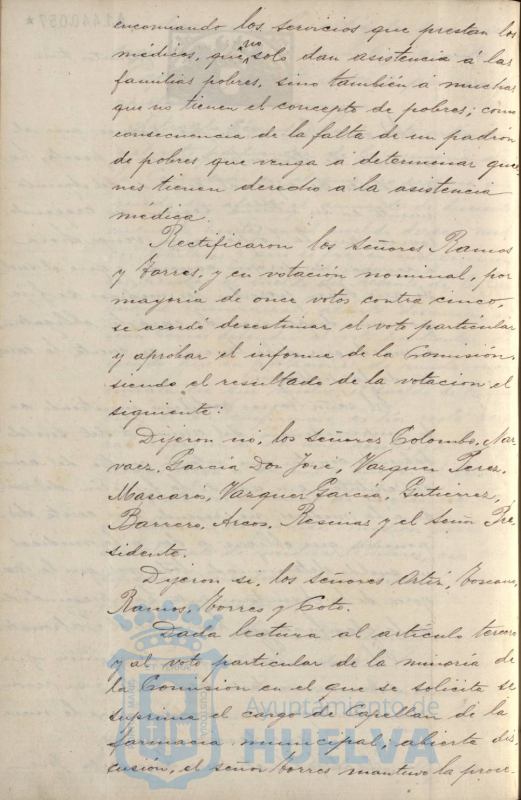 encomiando los servicios que prestan los
médicos, que no solo dan asistencia á las
familias pobres, sino también á muchas
que no tienen el concepto de pobres; como
consecuencia de la falta de un padrón
de pobres que venga á determinar quie-
nes tienen derecho á la asistencia
médica.
Rectificaron los señores Ramos
y Torres, y en votación nominal, por
mayoria de once votos contra cinco,
se acordó desestimar el voto particular
y aprobar el informe de la Comisión,
siendo el resultado de la votacion el
siguiente:
Dijeron no, los señores Colombo, Nar-
vaez, García Don José, Vazquez Perez,
Mascarós, Vazquez García, Gutierrez,
Barrero, Arcos, Resinas y el Señor Pre-
sidente.
Dijeron si, los señores Ortiz, Toscano,
Ramos, Torres y Coto.
Dada lectura al artículo tercero
y al voto particular de la minoria de
la Comisión en el que se solicita se
suprima el cargo de Capellan de la
farmacia municipal; abierta dis-
cusión, el señor Torres mantuvo la proce-
Ayuntamiento de
HUELVA